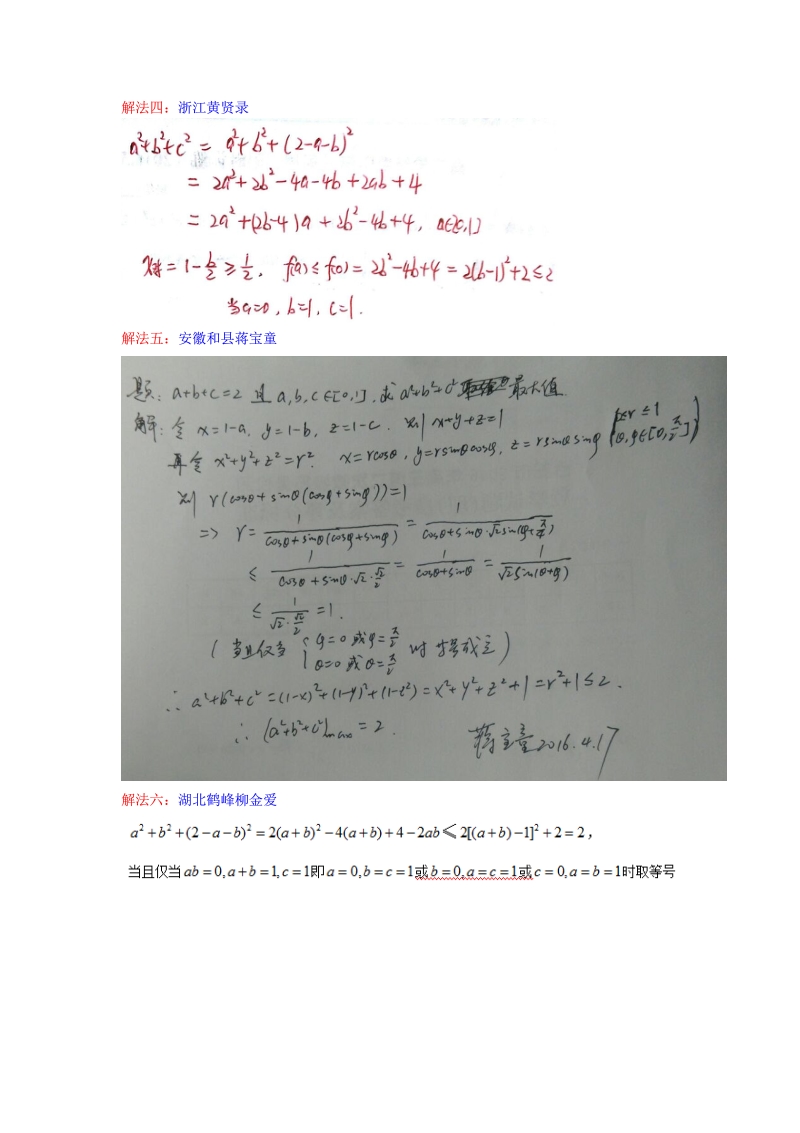 解法四：浙江黄贤录
a²+b²+c² = a²+b²+(2-a-b)²
= 2a²+2b²-4a-4b+2ab+4
= 2a²+(2b-4)a+2b²-4b+4, a∈[0,1]
= 1-b/2 ≥ 1/2, f(a)≤f(0)=2b²-4b+4=2(b-1)²+2≤2
当a=0, b=1, c=1.
解法五：安徽和县蒋宝童
题: a+b+c=2 且 a,b,c∈[0,1], 求 a²+b²+c² 最大值.
解: 令 x=1-a, y=1-b, z=1-c. 则 x+y+z=1
再令 x²+y²+z²=r². x=rcosθ, y=rsinθcosφ, z=rsinθsinφ ( r≤1 θ,φ∈[0,π/2] )
则 r(cosθ+sinθ(cosφ+sinφ))=1
=> r= 1/(cosθ+sinθ(cosφ+sinφ)) = 1/(cosθ+sinθ·√2sin(φ+π/4))
≤ 1/(cosθ+sinθ·√2·√2/2) = 1/(cosθ+sinθ) = 1/(√2sin(θ+φ))
≤ 1/(√2·√2/2) =1.
(当且仅当 { φ=0 或 φ=π/2 θ=0 或 θ=π/2 时 等号成立)
∴ a²+b²+c²=(1-x)²+(1-y)²+(1-z²)=x²+y²+z²+1=r²+1≤2.
∴ (a²+b²+c²)max=2.
蒋宝童 2016.4.17
解法六：湖北鹤峰柳金爱
a²+b²+(2-a-b)²=2(a+b)²-4(a+b)+4-2ab≤2[(a+b)-1]²+2=2，
当且仅当ab=0,a+b=1,c=1即a=0,b=c=1或b=0,a=c=1或c=0,a=b=1时取等号